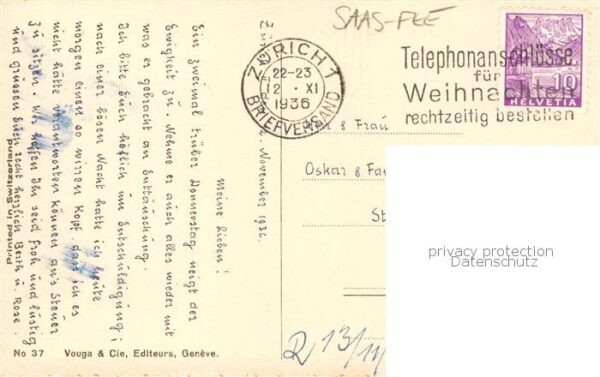 SAAS-FEE
ZÜRICH 1
22-23
12 · XI
1936
BRIEFVERSAND
Telephonanschlüsse
für
Weihnachten
rechtzeitig bestellen
10
HELVETIA
Zürich, November 1936.
Meine Lieben!
Ein zweimal trüber Donnerstag neigt der
Ewigkeit zu. Nehme er auch alles wieder mit
was er gebracht an Enttäuschung.
Ich bitte Euch höflich um Entschuldigung;
nach einer bösen Nacht hatte ich heute
morgen einen so wirren Kopf dass ich es
nicht hätte verantworten können an's Steuer
zu sitzen. Wir hoffen Ihr seid froh und lustig
und grüssen Euch recht herzlich Berth u. Rose.
& Frau
Oskar &
St
privacy protection
Datenschutz
Printed in Switzerland
No 37 Vouga & Cie, Editeurs, Genève.
R 13/11